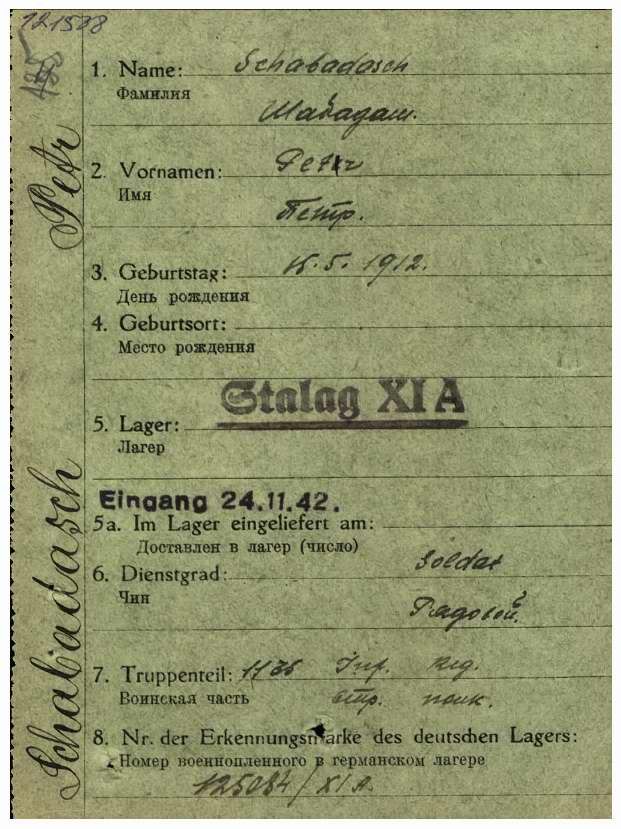 121588
Schabadasch Petr
1. Name: Schabadasch
Фамилия
Шабадаш.
2. Vornamen: Petr
Имя
Петр.
3. Geburtstag: 15.5. 1912.
День рождения
4. Geburtsort:
Место рождения
Stalag XI A
5. Lager:
Лагер
Eingang 24.11.42.
5a. Im Lager eingeliefert am:
Доставлен в лагер (число)
6. Dienstgrad: Soldat
Чин
Рядовой.
7. Truppenteil: Inf. Reg.
Воинская часть стр. полк.
8. Nr. der Erkennungsmarke des deutschen Lagers:
Номер военнопленного в германском лагере
125084/XI A.